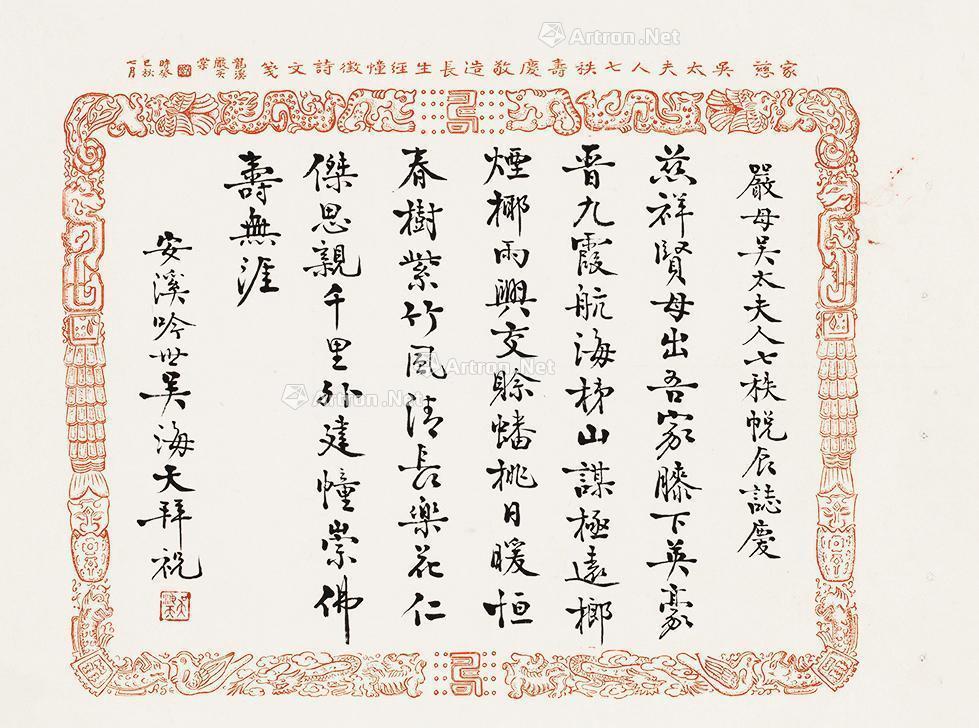 家慈吳太夫人七秩壽慶敬造長生經幢徵詩文箋
龍溪
嚴笑
棠
七月
嚴母吳太夫人七秩帨辰誌慶
慈祥賢母出吾家膝下英豪
晋九霞航海梯山謀極遠榔
煙椰雨興交賒蟠桃日暖恒
春樹紫竹風清長樂花仁
傑思親千里外建幢崇佛
壽無涯
安溪吟世吳海天拜祝
Artron.Net
Artron.Net
Artron.Net